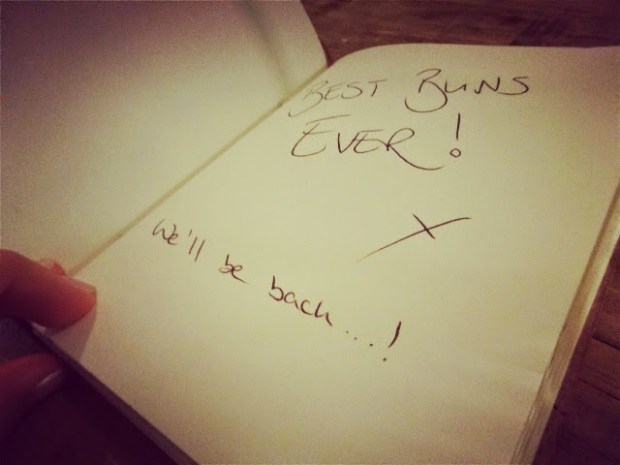 BEST BUNS
EVER!
X
We'll be back....!